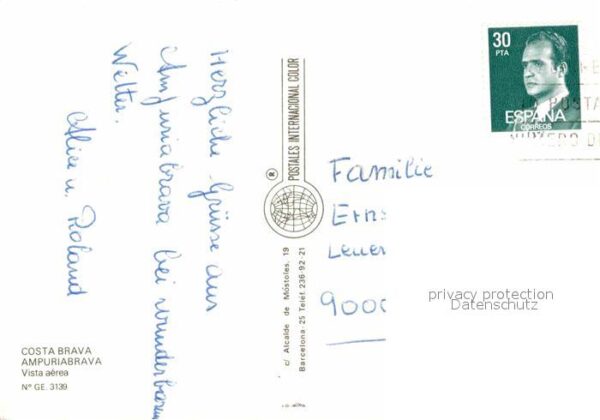 Herzliche Grüsse aus
Ampuriabrava bei wunderbarem
Wetter.
Alice u. Roland
COSTA BRAVA
AMPURIABRAVA
Vista aérea
Nº GE. 3139
POSTALES INTERNACIONAL COLOR
®
c/ Alcalde de Móstoles, 19
Barcelona-25 Teléf. 236-92-21
30
PTA
ESPAÑA
CORREOS
POSTA
NUMERO D
Familie
Erns
9000
privacy protection
Datenschutz